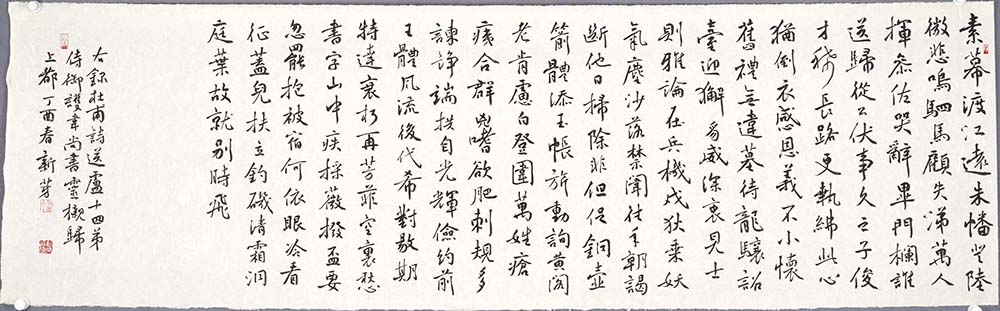 素幕渡江遠朱幡登陸
微悲鳴駟馬顧失涕萬人
揮參佐哭辭畢門欄誰
送歸從公伏事久之子俊
才稀長路更執紼此心
猶倒衣感恩義不小懷
舊禮無違墓待龍驤詔
臺迎獬豸威深衷見士
則雅論在兵機戎狄乘妖
氣塵沙落禁闈往年朝謁
斷他日掃除非但促銅壺
箭體添玉帳旂動詢黃閣
老肯慮白登圍萬姓瘡
痍合群兇嗜欲肥刺規多
諫諍端拱自光輝儉約前
王體風流後代希對敭期
特達衰朽再芳菲空裏愁
書字山中疾採薇撥盃要
忽罷抱被宿何依眼冷看
征蓋兒扶立釣磯清霜洞
庭葉故就別時飛
右錄杜甫詩送盧十四弟
侍御護韋尚書靈櫬歸
上都丁酉春新芽